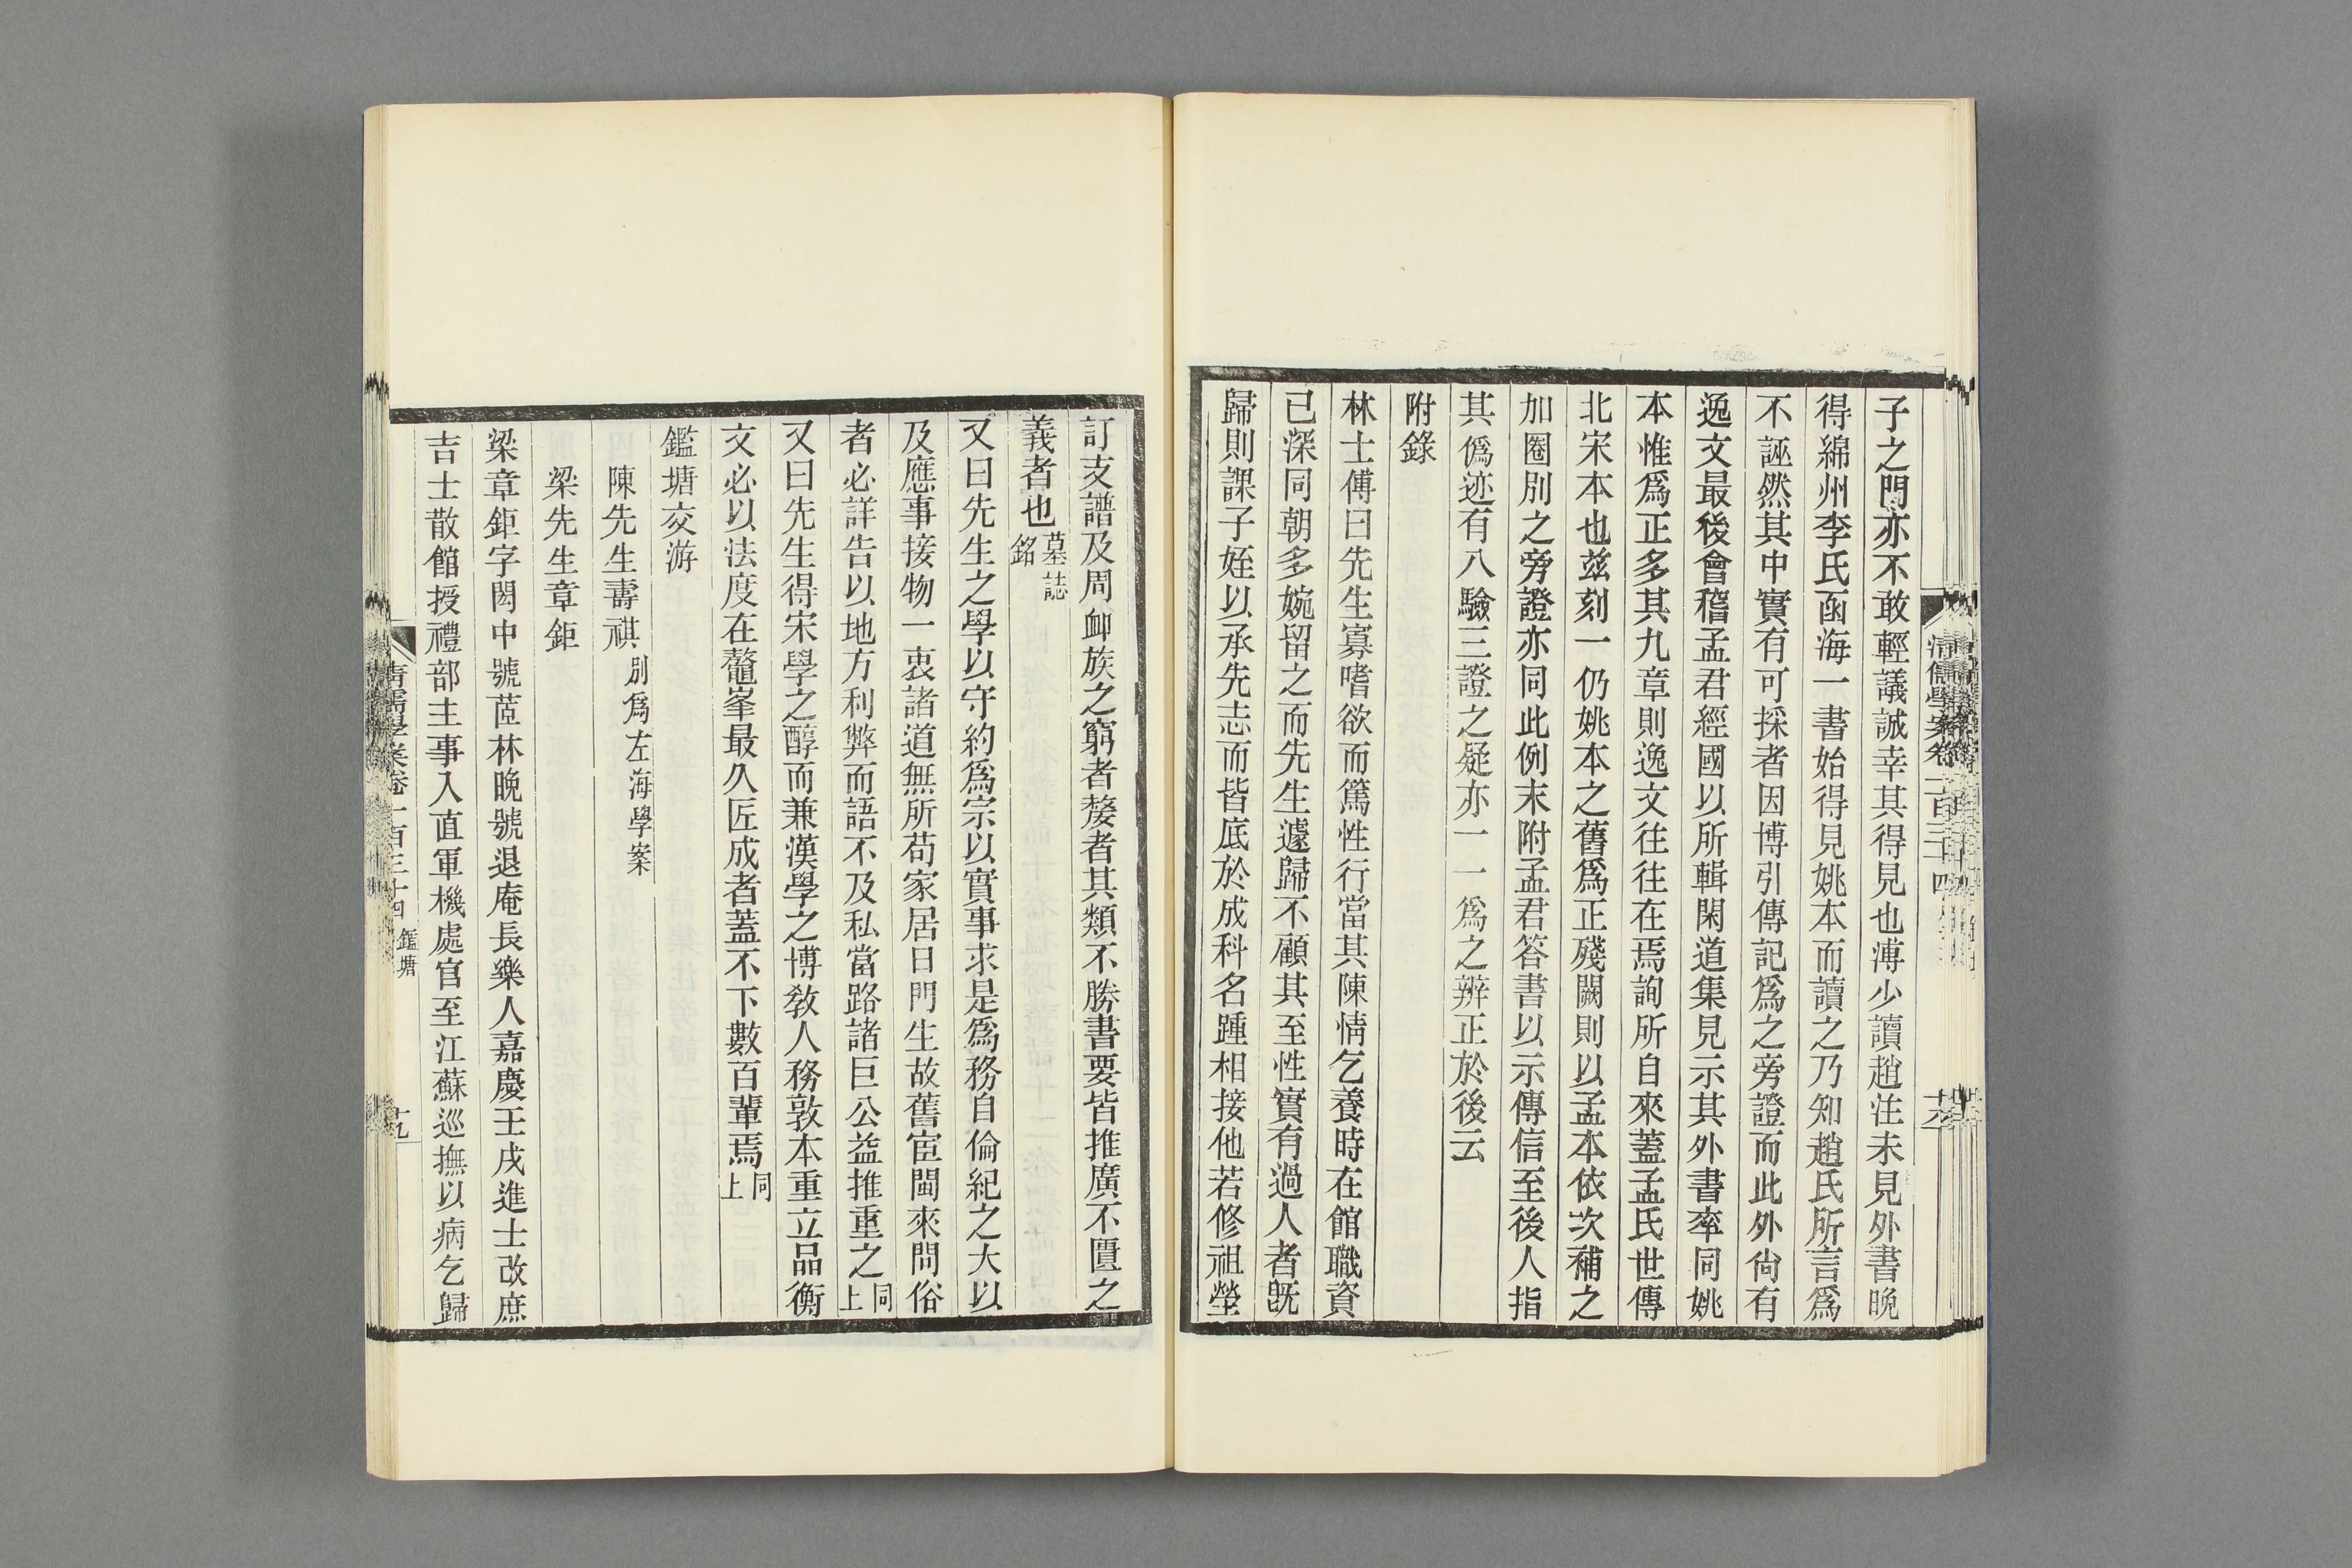 子之門亦不敢輕議誠幸其得見也溥少讀趙注未見外書晚
得綿州李氏函海一書始得見姚本而讀之乃知趙氏所言爲
不誣然其中實有可採者因博引傳記爲之旁證而此外尙有
逸文最後會稽孟君經國以所輯閑道集見示其外書率同姚
本惟爲正多其九章則逸文往往在焉詢所自來蓋孟氏世傳
北宋本也兹刻一仍姚本之舊爲正殘闕則以孟本依次補之
加圈別之旁證亦同此例末附孟君答書以示傳信至後人指
其僞迹有八驗三證之疑亦一一爲之辨正於後云
附錄
林士傅曰先生寡嗜欲而篤性行當其陳情乞養時在館職資
已深同朝多婉留之而先生遽歸不顧其至性實有過人者既
歸則課子姪以承先志而皆底於成科名踵相接他若修祖塋
訂支譜及周卹族之窮者嫠者其類不勝書要皆推廣不匱之
義者也墓誌銘
又曰先生之學以守約爲宗以實事求是爲務自倫紀之大以
及應事接物一衷諸道無所苟家居日門生故舊宦閩來問俗
者必詳告以地方利弊而語不及私當路諸巨公益推重之同上
又曰先生得宋學之醇而兼漢學之博敎人務敦本重立品衡
文必以法度在鼇峯最久匠成者蓋不下數百輩焉同上
鑑塘交游
陳先生壽祺別爲左海學案
梁先生章鉅
梁章鉅字閎中號茝林晚號退庵長樂人嘉慶壬戌進士改庶
吉士散館授禮部主事入直軍機處官至江蘇巡撫以病乞歸
清儒學案卷一百三十四 鑑塘
十九